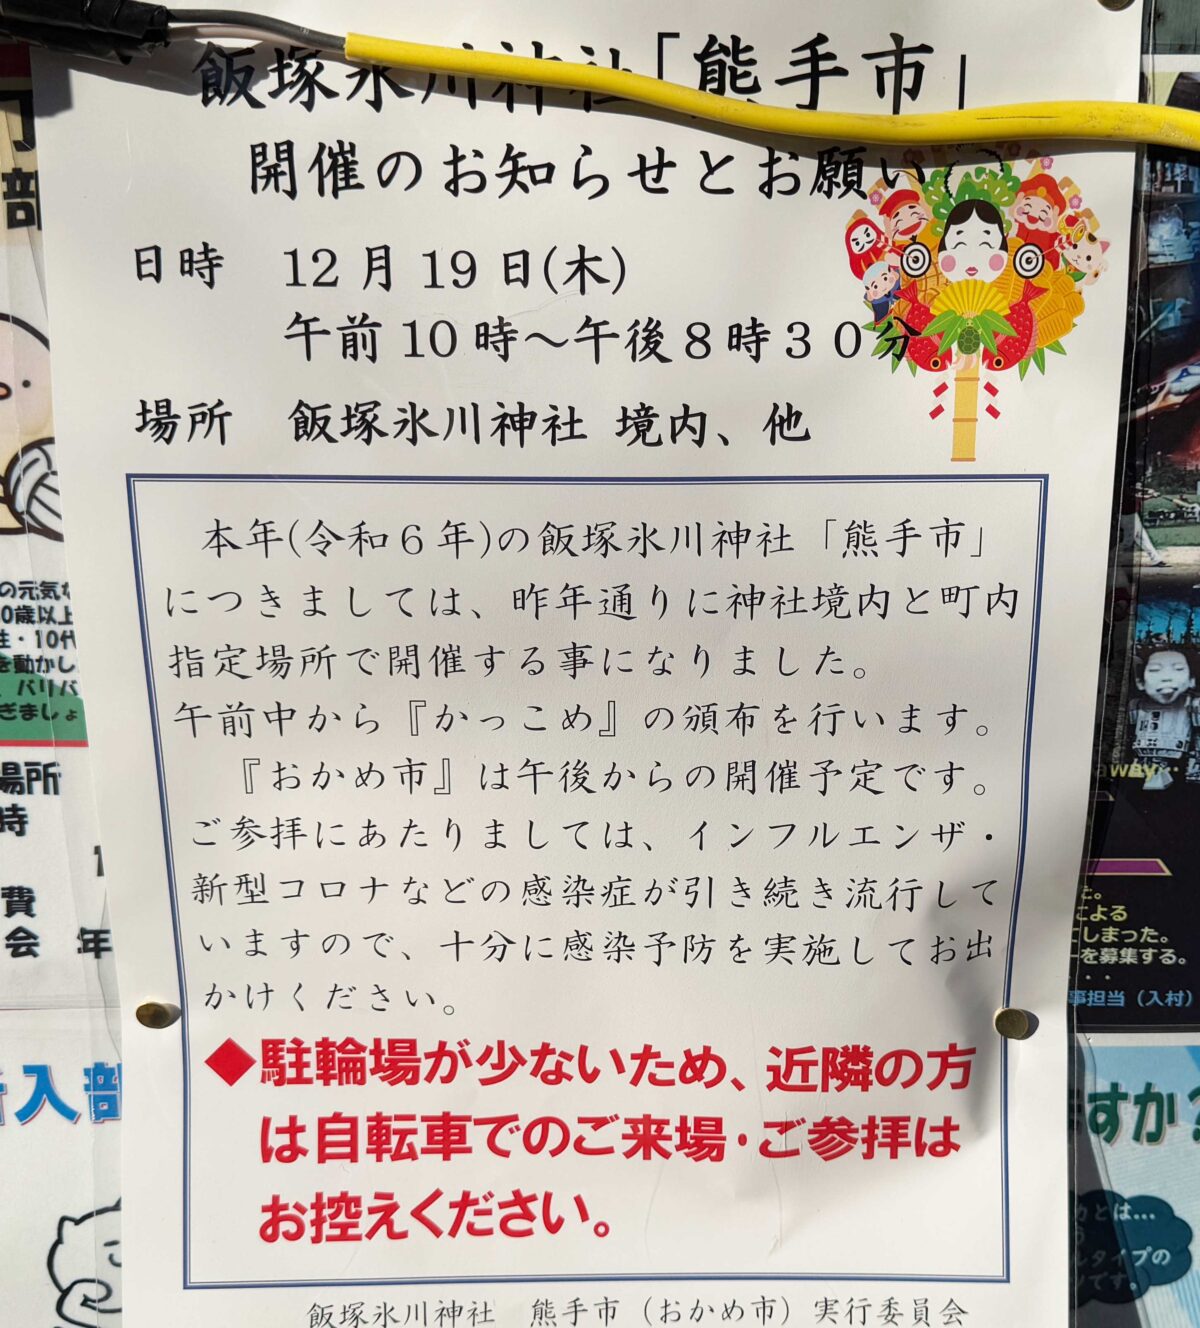 飯塚氷川神社「熊手市」
開催のお知らせとお願い
日時 12月19日(木)
午前10時～午後8時30分
場所 飯塚氷川神社 境内、他
本年(令和6年)の飯塚氷川神社「熊手市」
につきましては、昨年通りに神社境内と町内
指定場所で開催する事になりました。
午前中から『かっこめ』の頒布を行います。
『おかめ市』は午後からの開催予定です。
ご参拝にあたりましては、インフルエンザ・
新型コロナなどの感染症が引き続き流行して
いますので、十分に感染予防を実施してお出
かけください。
◆駐輪場が少ないため、近隣の方
は自転車でのご来場・ご参拝は
お控えください。
飯塚氷川神社 熊手市（おかめ市）実行委員会
部
の元気な
0歳以上
性・10代
を動かし
バリバ
ぎましょ
場所
時
費
会
年
入部
away
た。
による
てしまった。
ーを募集する。
事担当（入村）
ますか?
とは...
ルタイプの
です。